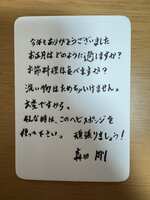 今年もありがとうございました
お正月はどのように過しますか？
お節料理は食べますか？
洗い物はためちゃいけません。
大変ですから。
そんな時は、このヘビスポンジを
使って下さい。 頑張りましょう！
真田 剛